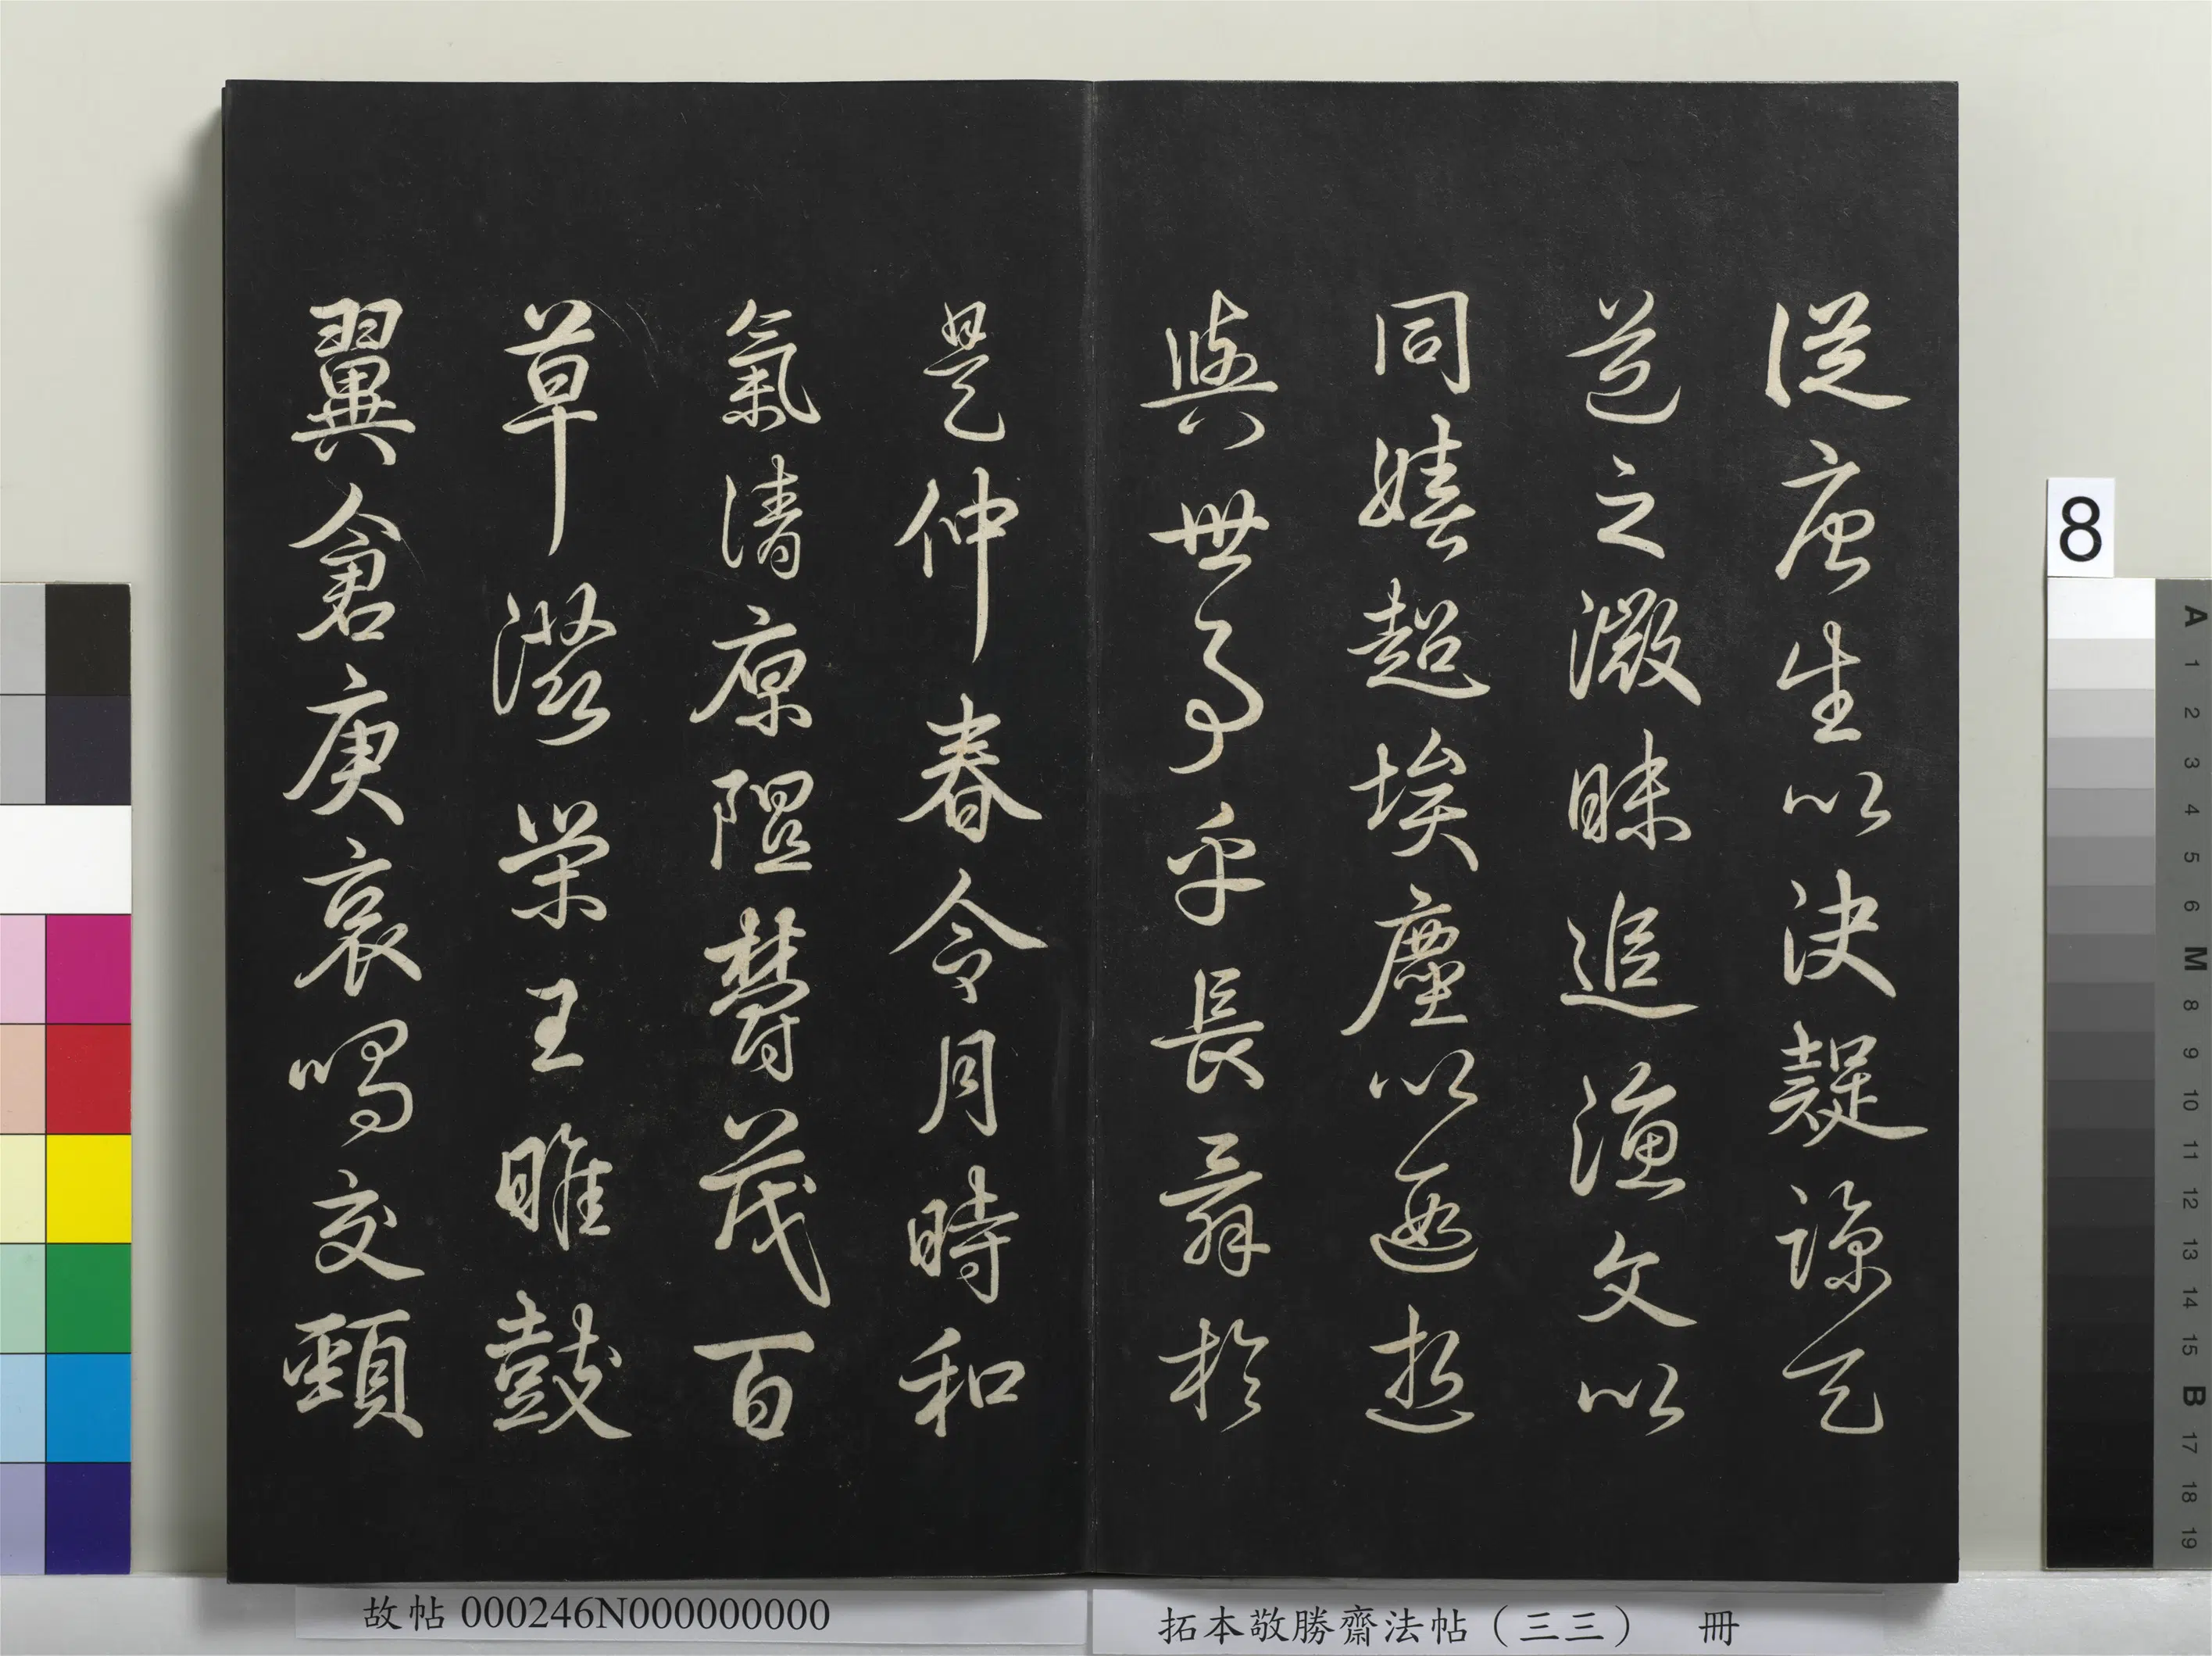 從唐生以決疑諒天
道之微昧追漁父以
同嬉超埃塵以遐逝
與世事乎長辭於
是仲春令月時和
氣清原隰鬱茂百
草滋榮王雎鼓
翼倉庚哀鳴交
頸
故帖 000246N000000000
拓本敬勝齋法帖（三三） 冊
8
A 1 2 3 4 5 6 M 8 9 10 11 12 13 14 15 B 17 18 19